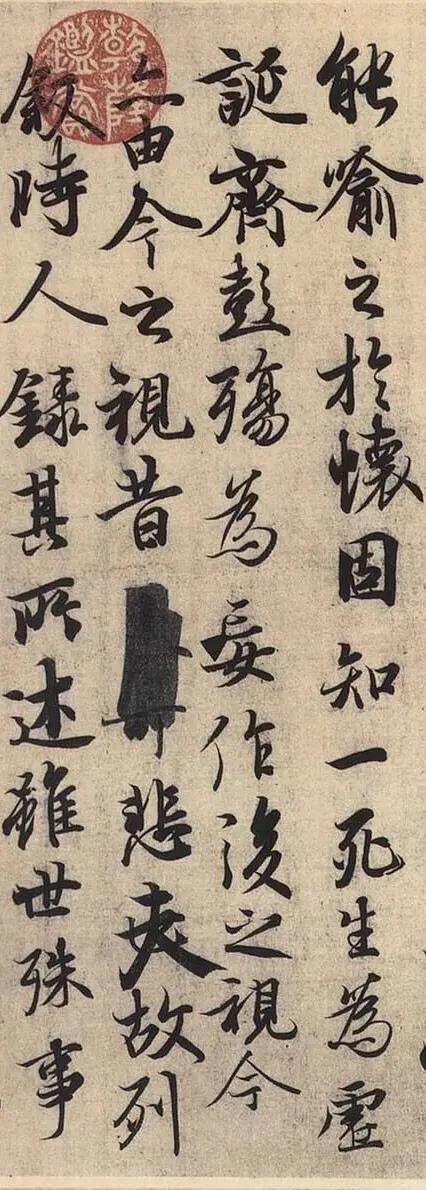 能喻之於懷固知一死生為虛
誕齊彭殤為妄作後之視今
亦由今之視昔悲夫故列
敘時人錄其所述雖世殊事
乾隆鑑賞